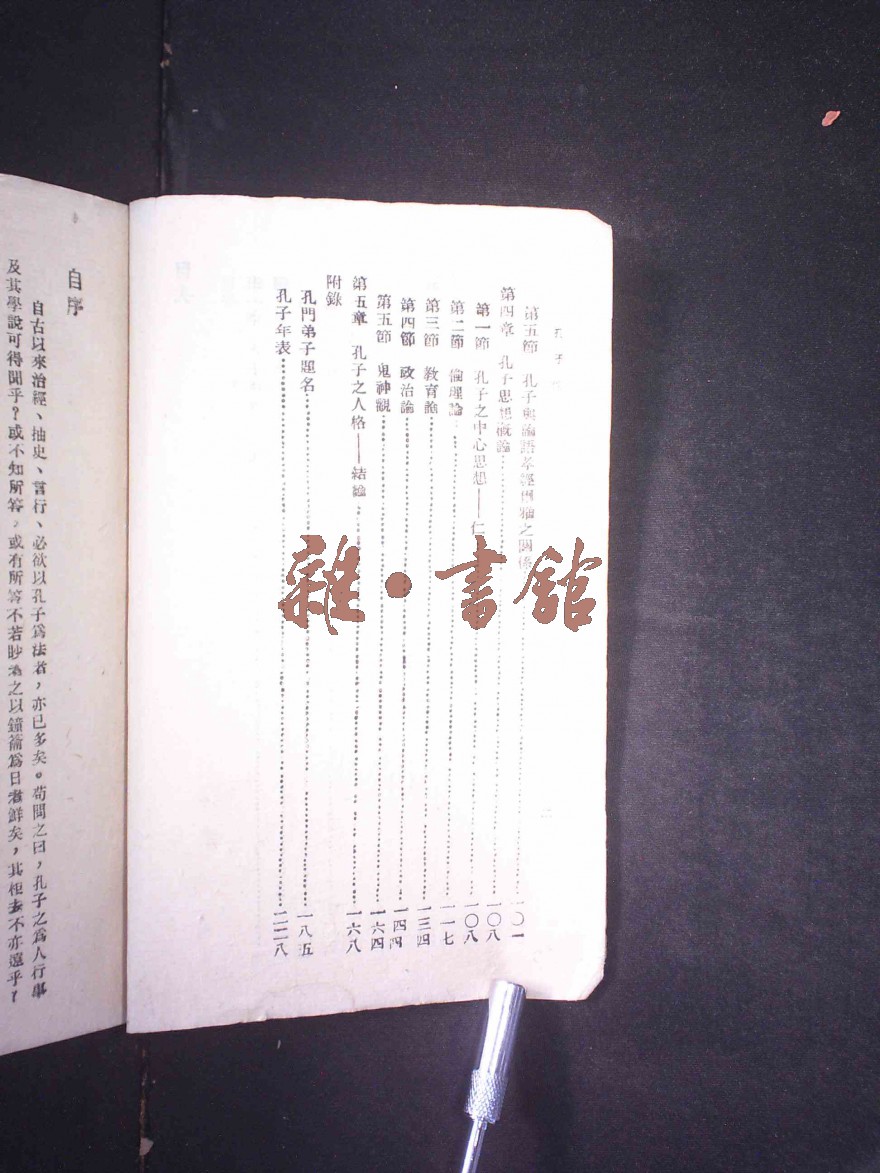 孔子
第五節　孔子與論語孝經爾雅之關係……一〇一
第四章　孔子思想概論……一〇八
第一節　孔子之中心思想——仁……一〇八
第二節　倫理論……一一七
第三節　教育論……一三四
第四節　政治論……一四四
第五節　鬼神觀……一六四
第五章　孔子之人格——結論……一六八
附錄
孔門弟子題名……一八五
孔子年表……二二八
二
自序
自古以來治經、抽史、言行、必欲以孔子爲法者，亦已多矣。苟問之曰，孔子之爲人行事
及其學說可得聞乎？或不知所答，或有所答不若眇者之以鐘籥爲日者鮮矣，其相去不亦遠乎？
雜·書館